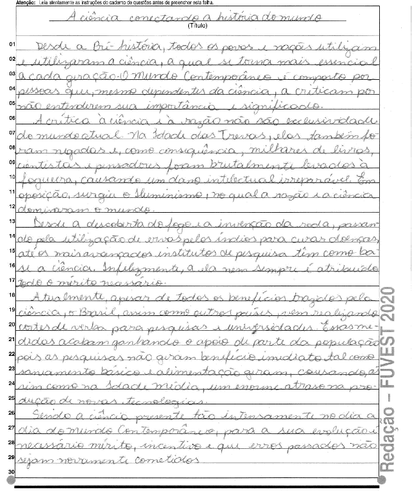 Atenção: Leia atentamente as instruções do caderno de questões antes de preencher esta folha.
A ciência conectando a história do mundo
(Título)
01 Desde a Pré-história, todos os povos e nações utilizam
02 e utilizaram a ciência, a qual se torna mais essencial
03 a cada geração. O mundo Contemporâneo é composto por
04 pessoas que, mesmo dependentes da ciência, a criticam por
05 não entenderem sua importância e significado.
06 A crítica à ciência e à razão não são exclusividade
07 do mundo atual. Na Idade das Trevas, elas também fo-
08 ram negadas e, como consequência, milhares de livros,
09 cientistas e pensadores foram brutalmente levados à
10 fogueira, causando um dano intelectual irreparável. Em
11 oposição, surgiu o Iluminismo, no qual a razão e a ciência
12 dominaram o mundo.
13 Desde a descoberta do fogo e a invenção da roda, passan-
14 do pela utilização de ervas pelos índios para curar doenças,
15 até os mais avançados institutos de pesquisa têm como ba-
16 se a ciência. Infelizmente, a ela nem sempre é atribuído
17 todo o mérito necessário.
18 Atualmente, apesar de todos os benefícios trazidos pela
19 ciência, o Brasil, assim como outros países, vem realizando
20 cortes de verba para pesquisas e universidades. Essas me-
21 didas acabam ganhando o apoio de parte da população
22 pois as pesquisas não geram benefício imediato tal como
23 saneamento básico e alimentação geram, causando, as-
24 sim como na Idade Média, um enorme atraso na pro-
25 dução de novas tecnologias.
26 Sendo a ciência presente tão intensamente no dia a
27 dia do mundo Contemporâneo, para a sua evolução é
28 necessário mérito, incentivo e que erros passados não
29 sejam novamente cometidos.
30
Redação – FUVEST 2020